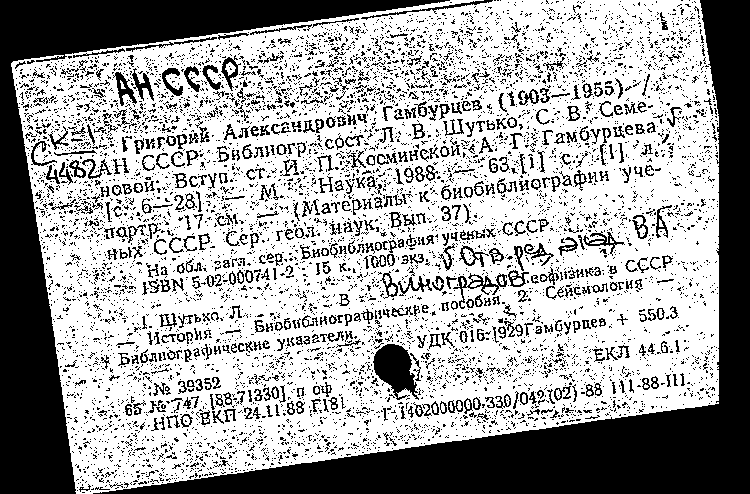 АН СССР
СК-1
4482
Григорий Александрович Гамбурцев (1903—1955) /
АН СССР; Библиогр. сост. Л. В. Шутько, С. В. Семе-
новой; Вступ. ст. И. П. Косминской, А. Г. Гамбурцева,
[с. 6—28]. — М. : Наука, 1988. — 63, [1] с., [1] л.
портр. ; 17 см. — (Материалы к биобиблиографии уче-
ных СССР. Сер. геол. наук; Вып. 37).
На обл. загл. сер.: Биобиблиография ученых СССР.
ISBN 5-02-000741-2 : 15 к., 1000 экз. Отв. ред. В.А.
Виноградов
1. Шутько, Л. В. Геофизика в СССР
— История — Биобиблиографические пособия. 2. Сейсмология —
Библиографические указатели.
УДК 016:[929Гамбурцев + 550.3
ЕКЛ 44.6.1
№ 39352
65 № 747 [88-71330] п оф
НПО ВКП 24.11.88 Г[8]
Г-1402000000-330/042(02)-88 111-88-III